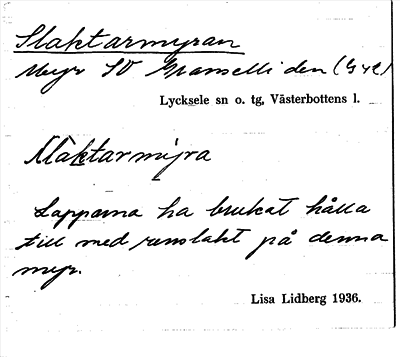 Slaktarmyran
Myr SV Granselliden (G 42)
Lycksele sn o. tg, Västerbottens l.
Slaktarmyra
Lapparna ha brukat hålla
till med renslakt på denna
myr.
Lisa Lidberg 1936.